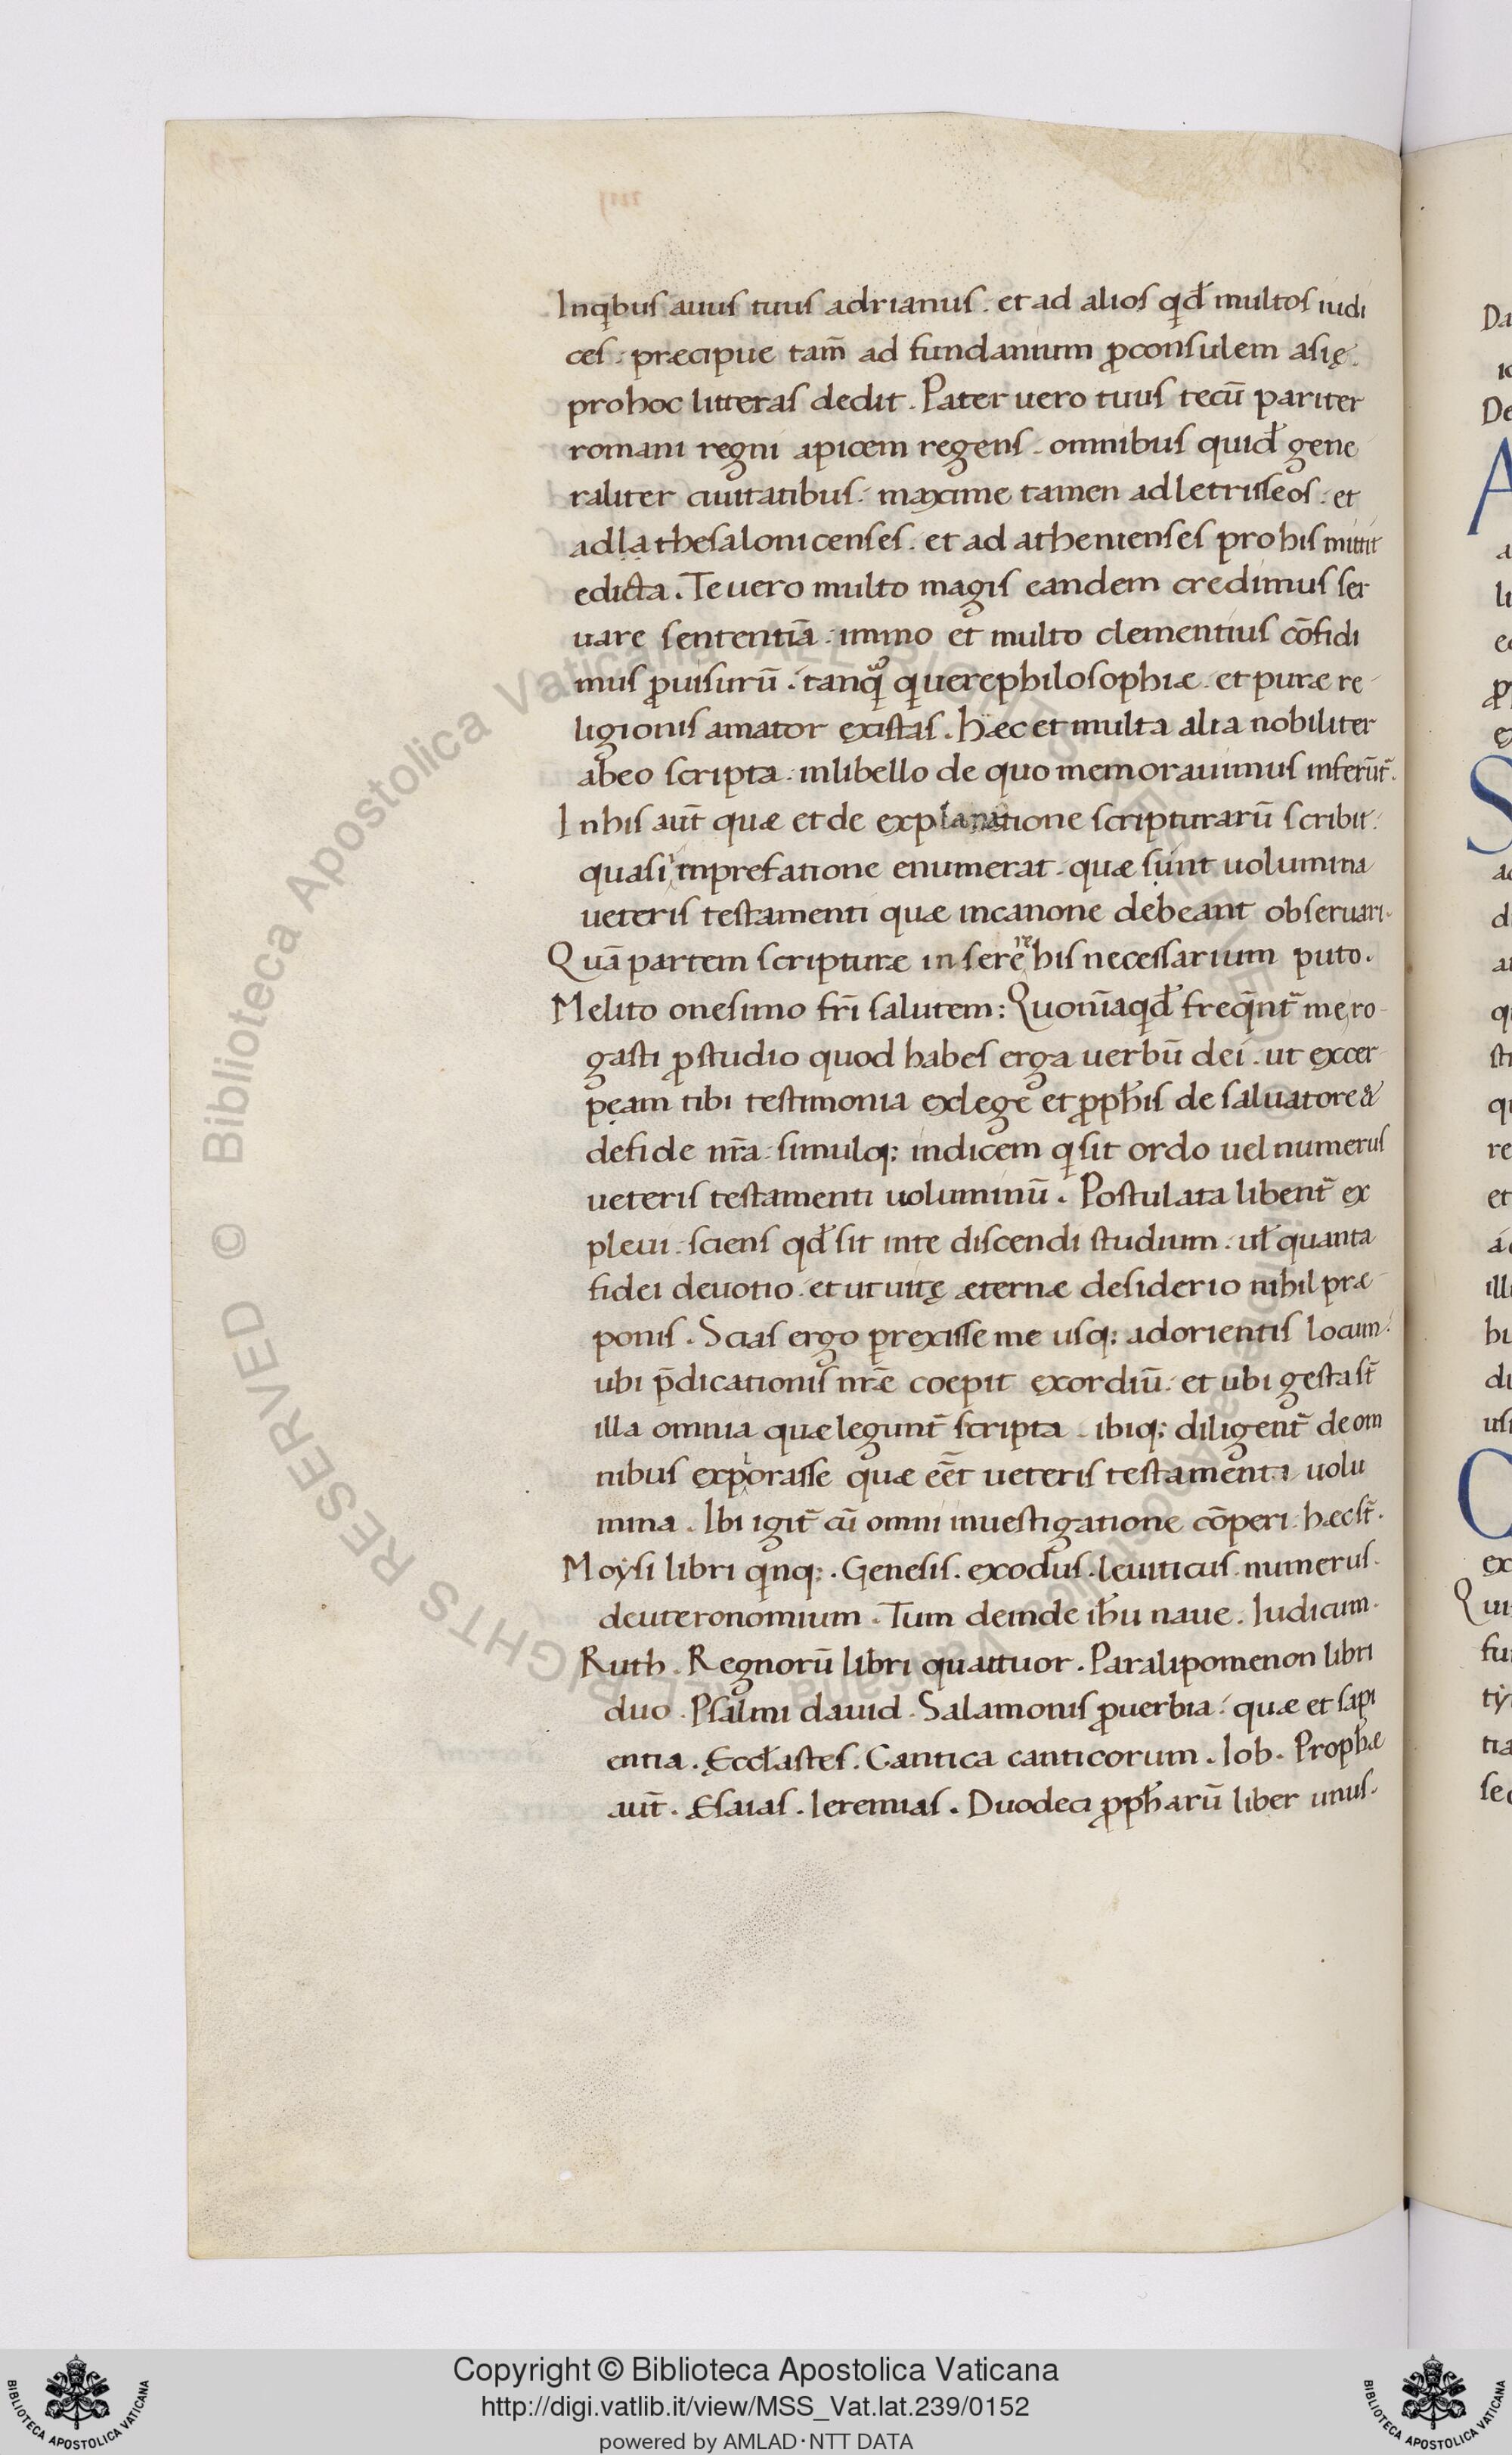 Inq̇bus auus tuus adrianus. et ad alios qđ multos iudi
ces. præcipue tam̄ ad fundanium ꝓconsulem asię.
pro hoc litteras dedit. Pater uero tuus tecū pariter
romani regni apicem regens. omnibus quiđ gene
raliter ciuitatibus. maxime tamen ad letrisseos. et
ad la thesalonicenses. et ad athenienses pro his mittit
edicta. Te uero multo magis eandem credimus ser
uare sententiā. immo et multo clementius cōfidi
mus ꝓuisurū. tanqͣ q uere philosophiæ. et puræ re
ligionis amator existas. hæc et multa alia nobiliter
ab eo scripta. in libello de quo memorauimus inferūt̄.
In his aūt quæ et de explanatione scripturarū scribit.
quasi in prefatione enumerat. quæ sunt uolumina
ueteris testamenti quæ in canone debeant obseruari.
Quā partem scripturæ inserere his necessarium puto.
Melito onesimo fr̄i salutem: Quonīa qđ freq̄nt̄ me ro
gasti ꝓ studio quod habes erga uerbū dei. ut excer
peam tibi testimonia ex lege et ꝓph̄is de saluatore &
de fide nr̄a. simulq; indicem q sit ordo uel numerus
ueteris testamenti uoluminū. Postulata libent̄ ex
pleui. sciens qđ sit in te discendi studium. ul̄ quanta
fidei deuotio. et ut uitę æternæ desiderio nihil præ
ponis. Scias ergo ꝑrexisse me usq; ad orientis locum.
ubi p̄dicationis nr̄e coepit exordiū. et ubi gesta st̄
illa omnia quæ legunt̄ scripta. ibiq; diligent̄ de om
nibus explorasse quæ eēt ueteris testamenti uolu
mina. Ibi igit̄ cū omni inuestigatione cōperi. hæc st̄.
Moysi libri qnq;. Genesis. exodus. leuiticus. numerus.
deuteronomium. Tum deinde ih̄u naue. Iudicum.
Ruth. Regnorū libri quattuor. Paralipomenon libri
duo. Psalmi dauid. Salamonis ꝓuerbia. quæ et sapi
entia. Eccl̄astes. Cantica canticorum. Iob. Proph̄æ
aūt. Esaias. Ieremias. Duodeci ꝓph̄arū liber unus.
Copyright © Biblioteca Apostolica Vaticana
http://digi.vatlib.it/view/MSS_Vat.lat.239/0152
powered by AMLAD·NTT DATA